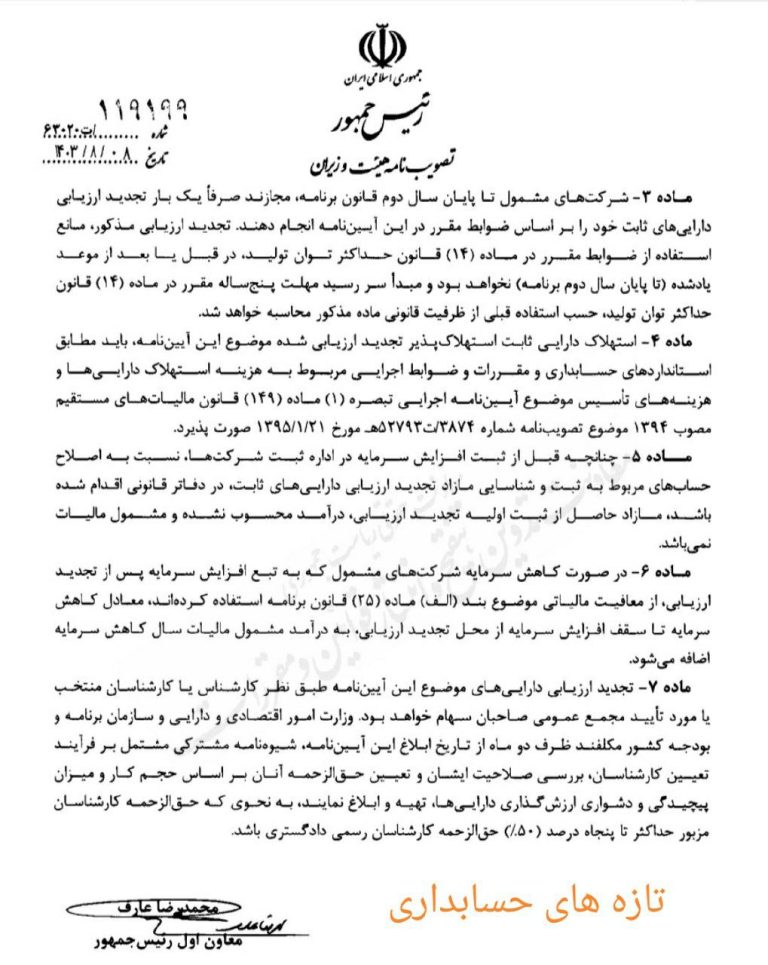 جمهوری اسلامی ایران
رئیس جمهور
تصویب‌نامه هیئت وزیران
۱۱۹۱۹۹
شماره ........./ت۶۳۰۲۰
تاریخ ۱۴۰۳/۸/۰۸
ماده ۳- شرکت‌های مشمول تا پایان سال دوم قانون برنامه، مجازند صرفاً یک بار تجدید ارزیابی
دارایی‌های ثابت خود را بر اساس ضوابط مقرر در این آیین‌نامه انجام دهند. تجدید ارزیابی مذکور، مانع
استفاده از ضوابط مقرر در ماده (۱۴) قانون حداکثر توان تولید، در قبل یا بعد از موعد
یادشده (تا پایان سال دوم برنامه) نخواهد بود و مبدأ سر رسید مهلت پنج‌ساله مقرر در ماده (۱۴) قانون
حداکثر توان تولید، حسب استفاده قبلی از ظرفیت قانونی ماده مذکور محاسبه خواهد شد.
ماده ۴- استهلاک دارایی ثابت استهلاک‌پذیر تجدید ارزیابی شده موضوع این آیین‌نامه، باید مطابق
استانداردهای حسابداری و مقررات و ضوابط اجرایی مربوط به هزینه استهلاک دارایی‌ها و
هزینه‌های تأسیس موضوع آیین‌نامه اجرایی تبصره (۱) ماده (۱۴۹) قانون مالیات‌های مستقیم
مصوب ۱۳۹۴ موضوع تصویب‌نامه شماره ۳۸۷۴/ت۵۲۷۹۳هـ مورخ ۱۳۹۵/۱/۲۱ صورت پذیرد.
ماده ۵- چنانچه قبل از ثبت افزایش سرمایه در اداره ثبت شرکت‌ها، نسبت به اصلاح
حساب‌های مربوط به ثبت و شناسایی مازاد تجدید ارزیابی دارایی‌های ثابت، در دفاتر قانونی اقدام شده
باشد، مازاد حاصل از ثبت اولیه تجدید ارزیابی، درآمد محسوب نشده و مشمول مالیات
نمی‌باشد.
ماده ۶- در صورت کاهش سرمایه شرکت‌های مشمول که به تبع افزایش سرمایه پس از تجدید
ارزیابی، از معافیت مالیاتی موضوع بند (الف) ماده (۲۵) قانون برنامه استفاده کرده‌اند، معادل کاهش
سرمایه تا سقف افزایش سرمایه از محل تجدید ارزیابی، به درآمد مشمول مالیات سال کاهش سرمایه
اضافه می‌شود.
ماده ۷- تجدید ارزیابی دارایی‌های موضوع این آیین‌نامه طبق نظر کارشناس یا کارشناسان منتخب
یا مورد تأیید مجمع عمومی صاحبان سهام خواهد بود. وزارت امور اقتصادی و دارایی و سازمان برنامه و
بودجه کشور مکلفند ظرف دو ماه از تاریخ ابلاغ این آیین‌نامه، شیوه‌نامه مشترکی مشتمل بر فرآیند
تعیین کارشناسان، بررسی صلاحیت ایشان و تعیین حق‌الزحمه آنان بر اساس حجم کار و میزان
پیچیدگی و دشواری ارزش‌گذاری دارایی‌ها، تهیه و ابلاغ نمایند، به نحوی که حق‌الزحمه کارشناسان
مزبور حداکثر تا پنجاه درصد (۵۰٪) حق‌الزحمه کارشناسان رسمی دادگستری باشد.
محمدرضا عارف
معاون اول رئیس‌جمهور
تازه های حسابداری